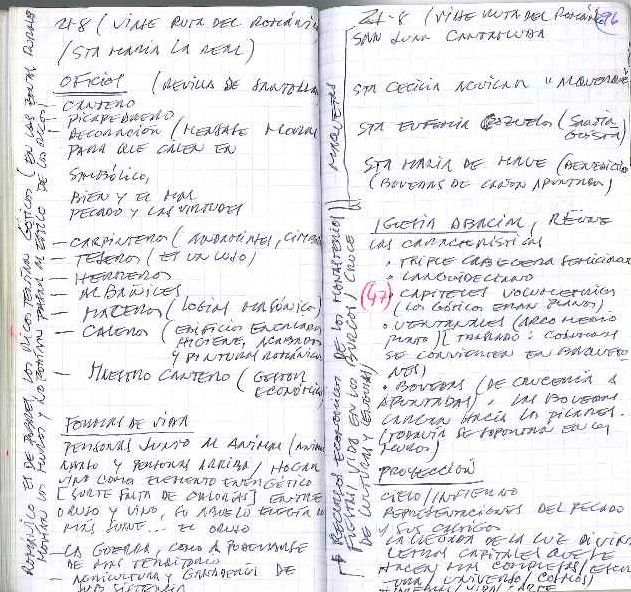 21-8 (VIAJE RUTA DEL ROMÁNICO
/STA MARIA LA REAL)
OFICIOS (REVILLA DE SANTULLÁN
CANTERO
PICAPEDRERO
DECORACIÓN (MENSAJE MORAL
PARA QUE CALEN EN
SIMBÓLICO,
BIEN Y EL MAL
PECADO Y LAS VIRTUDES
- CARPINTEROS (ANDAMIAJES, CIMBRAS
- TEJEROS (ES UN LUJO)
- HERREROS
- ALBAÑILES
- (LOGIAS MASÓNICAS)
- CALEROS (EDIFICIOS ENCALADOS
HIGIENE, ACABADOS
Y PINTURAS ROMÁNICAS
- MAESTRO CANTERO (GESTOR
ECONÓMICO
FORMAS DE VIDA
PERSONAS JUNTO AL ANIMAL (ANIMAL
ABAJO Y PERSONAS ARRIBA / HOGAR
VINO COMO ELEMENTO ENERGÉTICO
[SUPLE FALTA DE CALORÍAS] ENTRE
ORUJO Y VINO, SU ABUELO ELEGÍA LO
MÁS FUERTE... EL ORUJO
- LA GUERRA, COMO APODERARSE
DE MÁS TERRITORIO
- AGRICULTURA Y GANADERÍA DE
SUBSISTENCIA
ROMÁNICO ES DE POBRES, LOS RICOS TENÍAN GÓTICOS (EN LAS ZONAS RURALES
LOS MUROS Y NO PODÍAN PASAR AL ESTILO DE LOS RICOS)
21-8 (VIAJE RUTA DEL ROMÁNICO 96
SAN JUAN CANTALUDA
STA CECILIA AGUILAR "
STA EUFEMIA COZUELOS (SANTA
STA MARIA DE MAVE (BENEDICTINO
(BOVEDAS DE CAÑON APUNTADAS)
MAQUETAS
IGLESIA ABACIAL, REUNE
LAS CARACTERÍSTICAS
• TRIPLE CABECERA SEMICIRCULAR
• LANGUIDECIANO
(47) • CAPITELES VOLUMETRICOS
(LOS GÓTICOS ERAN PLANOS)
• VENTANALES (ARCO MEDIO
PUNTO) [TRABADO: COLUMNAS
SE CONVIERTEN EN BAQUETO
NES)
• BOVEDAS (DE CRUCERIA &
APUNTADAS), LAS BOVEDAS
CARGAN HACIA LOS PILARES..
(TODAVÍA SE SOPORTAN EN LOS
MUROS)
PROYECCIÓN
CIELO/INFIERNO
REPRESENTACIONES DEL PECADO
Y SUS CASTIGOS
LA LLEGADA DE LA LUZ DIVINA
LETRAS CAPITALES QUE SE
HACEN MAS COMPLEJAS/ESCUL
TURA/UNIVERSO/CODICES)
/VIDA/ARTE
RECURSOS ECONÓMICOS DE LOS MONASTERIOS)
VIDA EN LOS BURGOS, CRUCE
DE CULTURAS Y